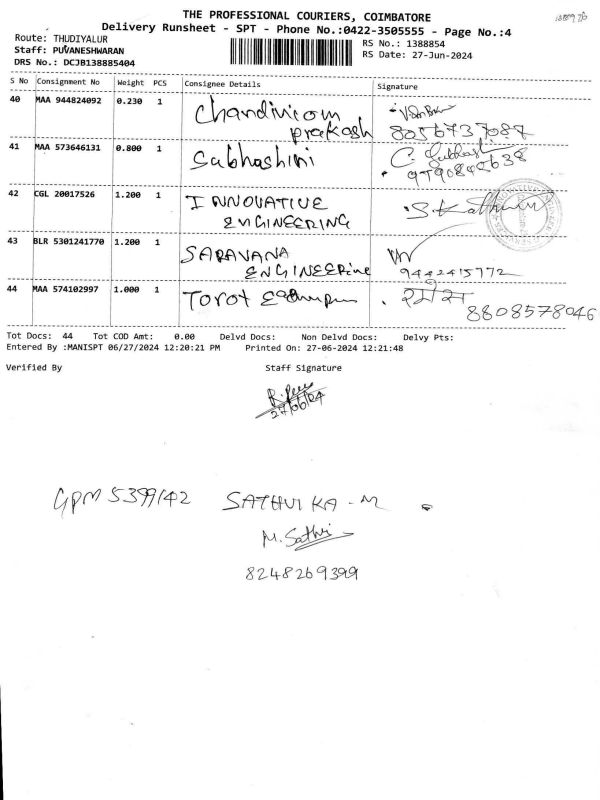 THE PROFESSIONAL COURIERS, COIMBATORE
Delivery Runsheet - SPT - Phone No.:0422-3505555 - Page No.:4
Route: THUDIYALUR
Staff: PUVANESHWARAN
DRS No.: DCJB138885404
RS No.: 1388854
RS Date: 27-Jun-2024
S No Consignment No Weight PCS Consignee Details Signature
40 MAA 944824092 0.230 1 Chandiniram
prakash 8056737087
41 MAA 573646131 0.800 1 Subhashini
42 CGL 20017526 1.200 1 INNOVATIVE
ENGINEERING
43 BLR 5301241770 1.200 1 SARAVANA
ENGINEERing 9442415772
44 MAA 574102997 1.000 1
8808578046
Tot Docs: 44 Tot COD Amt: 0.00 Delvd Docs: Non Delvd Docs: Delvy Pts:
Entered By :MANISPT 06/27/2024 12:20:21 PM Printed On: 27-06-2024 12:21:48
Verified By Staff Signature
27/06/24
GPM 5399142 SATHVIKA - M
M. Sathvi
8248269399